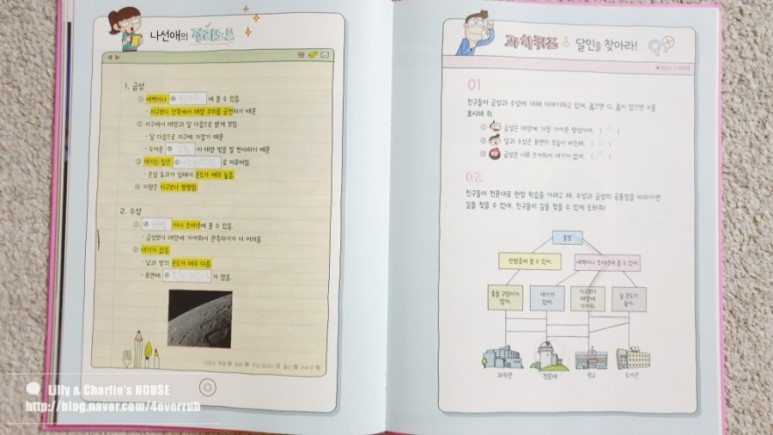 나선애의 정리노트
1. 금성
① 새벽이나 에 볼 수 있음.
- 지구보다 안쪽에서 태양 주위를 공전하기 때문
② 지구에서 태양과 달 다음으로 밝게 보임.
- 달 다음으로 지구에 가깝기 때문
- 두꺼운 이 태양 빛을 잘 반사하기 때문
③ 대기는 짙은 로 이루어짐.
- 온실 효과가 심해서 온도가 매우 높음.
④ 지형은 지구보다 평평함.
2. 수성
① 이나 초저녁에 볼 수 있음.
- 금성보다 태양에 가까워서 관측하기가 더 어려움.
② 대기가 없음.
- 낮과 밤의 온도가 매우 다름.
- 표면에 가 많음.
과학퀴즈 달인을 찾아라!
01
친구들이 금성과 수성에 대해 이야기하고 있어. 옳으면 O, 옳지 않으면 X를
표시해 줘.
① 금성은 태양에 가장 가까운 행성이야. ( )
② 달과 수성은 표면의 모습이 비슷해. ( )
③ 금성은 너무 뜨거워서 대기가 없어. ( )
02
친구들이 천문대로 현장 학습을 가려고 해. 수성과 금성의 공통점을 따라가면
길을 찾을 수 있대. 친구들이 길을 찾을 수 있게 도와줘!
출발
한밤중에 볼 수 있어.
새벽이나 초저녁에 볼 수 있어.
물동 구덩이가 많어.
대기가 있어.
지구보다 태양에 가까워.
늘 온도가 높아.
과학관
천문대
학교
도서관
Lilly & Charlie's HOUSE
http://blog.naver.com/4everrub